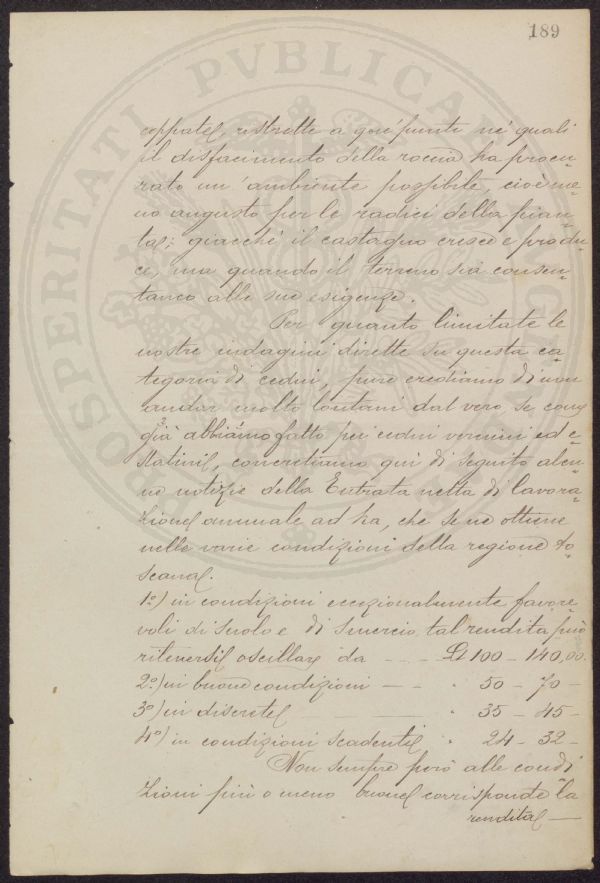 189
ceppate, ristrette a que' punti ne' quali
il disfacimento della roccia ha procu-
rato un'ambiente possibile, cioè me-
no angusto per le radici della pian-
ta; giacchè il castagno cresce e produ-
ce, ma quando il terreno sia consen-
taneo alle sue esigenze.
Per quanto limitate le
nostre indagini dirette su questa ca-
tegoria di cedui, pure crediamo di non
andar molto lontani dal vero, se come
già abbiamo fatto pei cedui vernini ed e-
stativi, concretiamo qui di seguito alcu-
ne notizie della Entrata netta di lavora-
zione annuale ad ha, che se ne ottiene
nelle varie condizioni della regione to-
scana.
1º) in condizioni eccezionalmente favore-
voli di suolo e di smercio tal rendita può
ritenersi oscillare da — — £ 100 — 140,00.
2º) in buone condizioni — — " 50 — 70 —
3º) in discrete — — " 35 — 45 —
4º) in condizioni scadenti " 24 — 32 —
Non sempre però alle condi-
zioni più o meno buone corrisponde la
rendita —
PROSPERITATI PVBLICAE